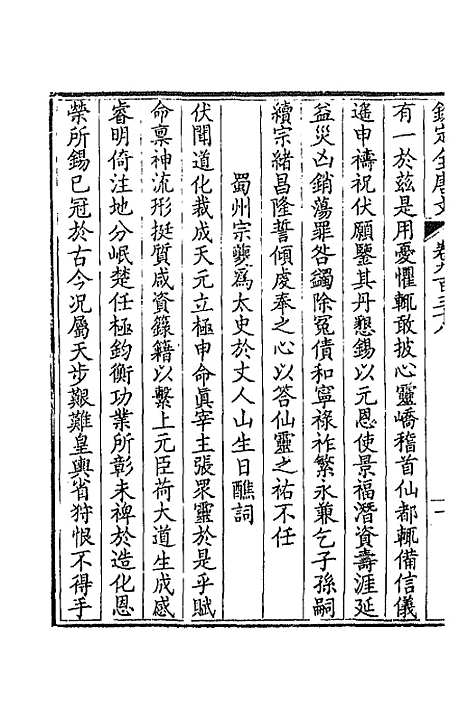 欽定全唐文 卷九百三十八 十一
有一於茲是用憂懼輒敢披心靈嶠稽首仙都輒備信儀
遥申禱祝伏願鑒其丹懇錫以元恩使景福潛資壽涯延
益災凶銷蕩罪咎蠲除冤債和寧祿祚繁永兼乞子孫嗣
續宗緒昌隆誓傾虔奉之心以荅仙靈之祐不任
蜀州宗夔爲太史於丈人山生日醮詞
伏聞道化裁成天元立極申命眞宰主張眾靈於是乎賦
命稟神流形挺質咸資籙籍以繫上元臣荷大道生成感
睿明倚注地分岷楚任極鈞衡功業所彰未裨於造化恩
榮所錫已冠於古今況屬天步艱難皇輿省狩恨不得手